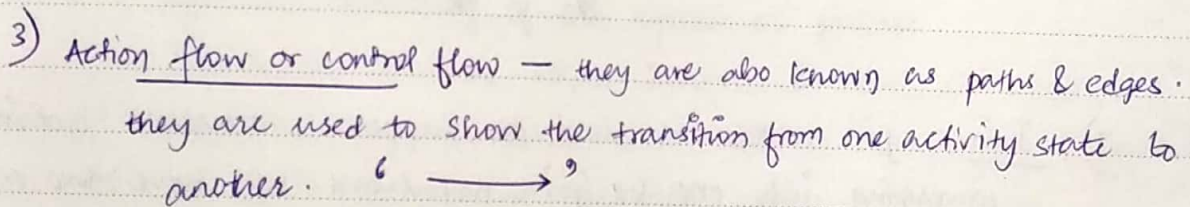 3) Action flow or control flow — they are also known as paths & edges.
they are used to show the transition from one activity state to
another. ‘ ⟶ ’